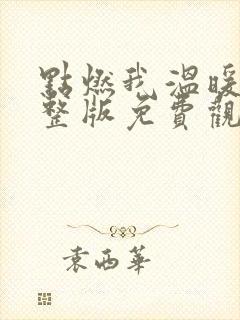 點燃我 溫暖
整版免費觀
袁西華